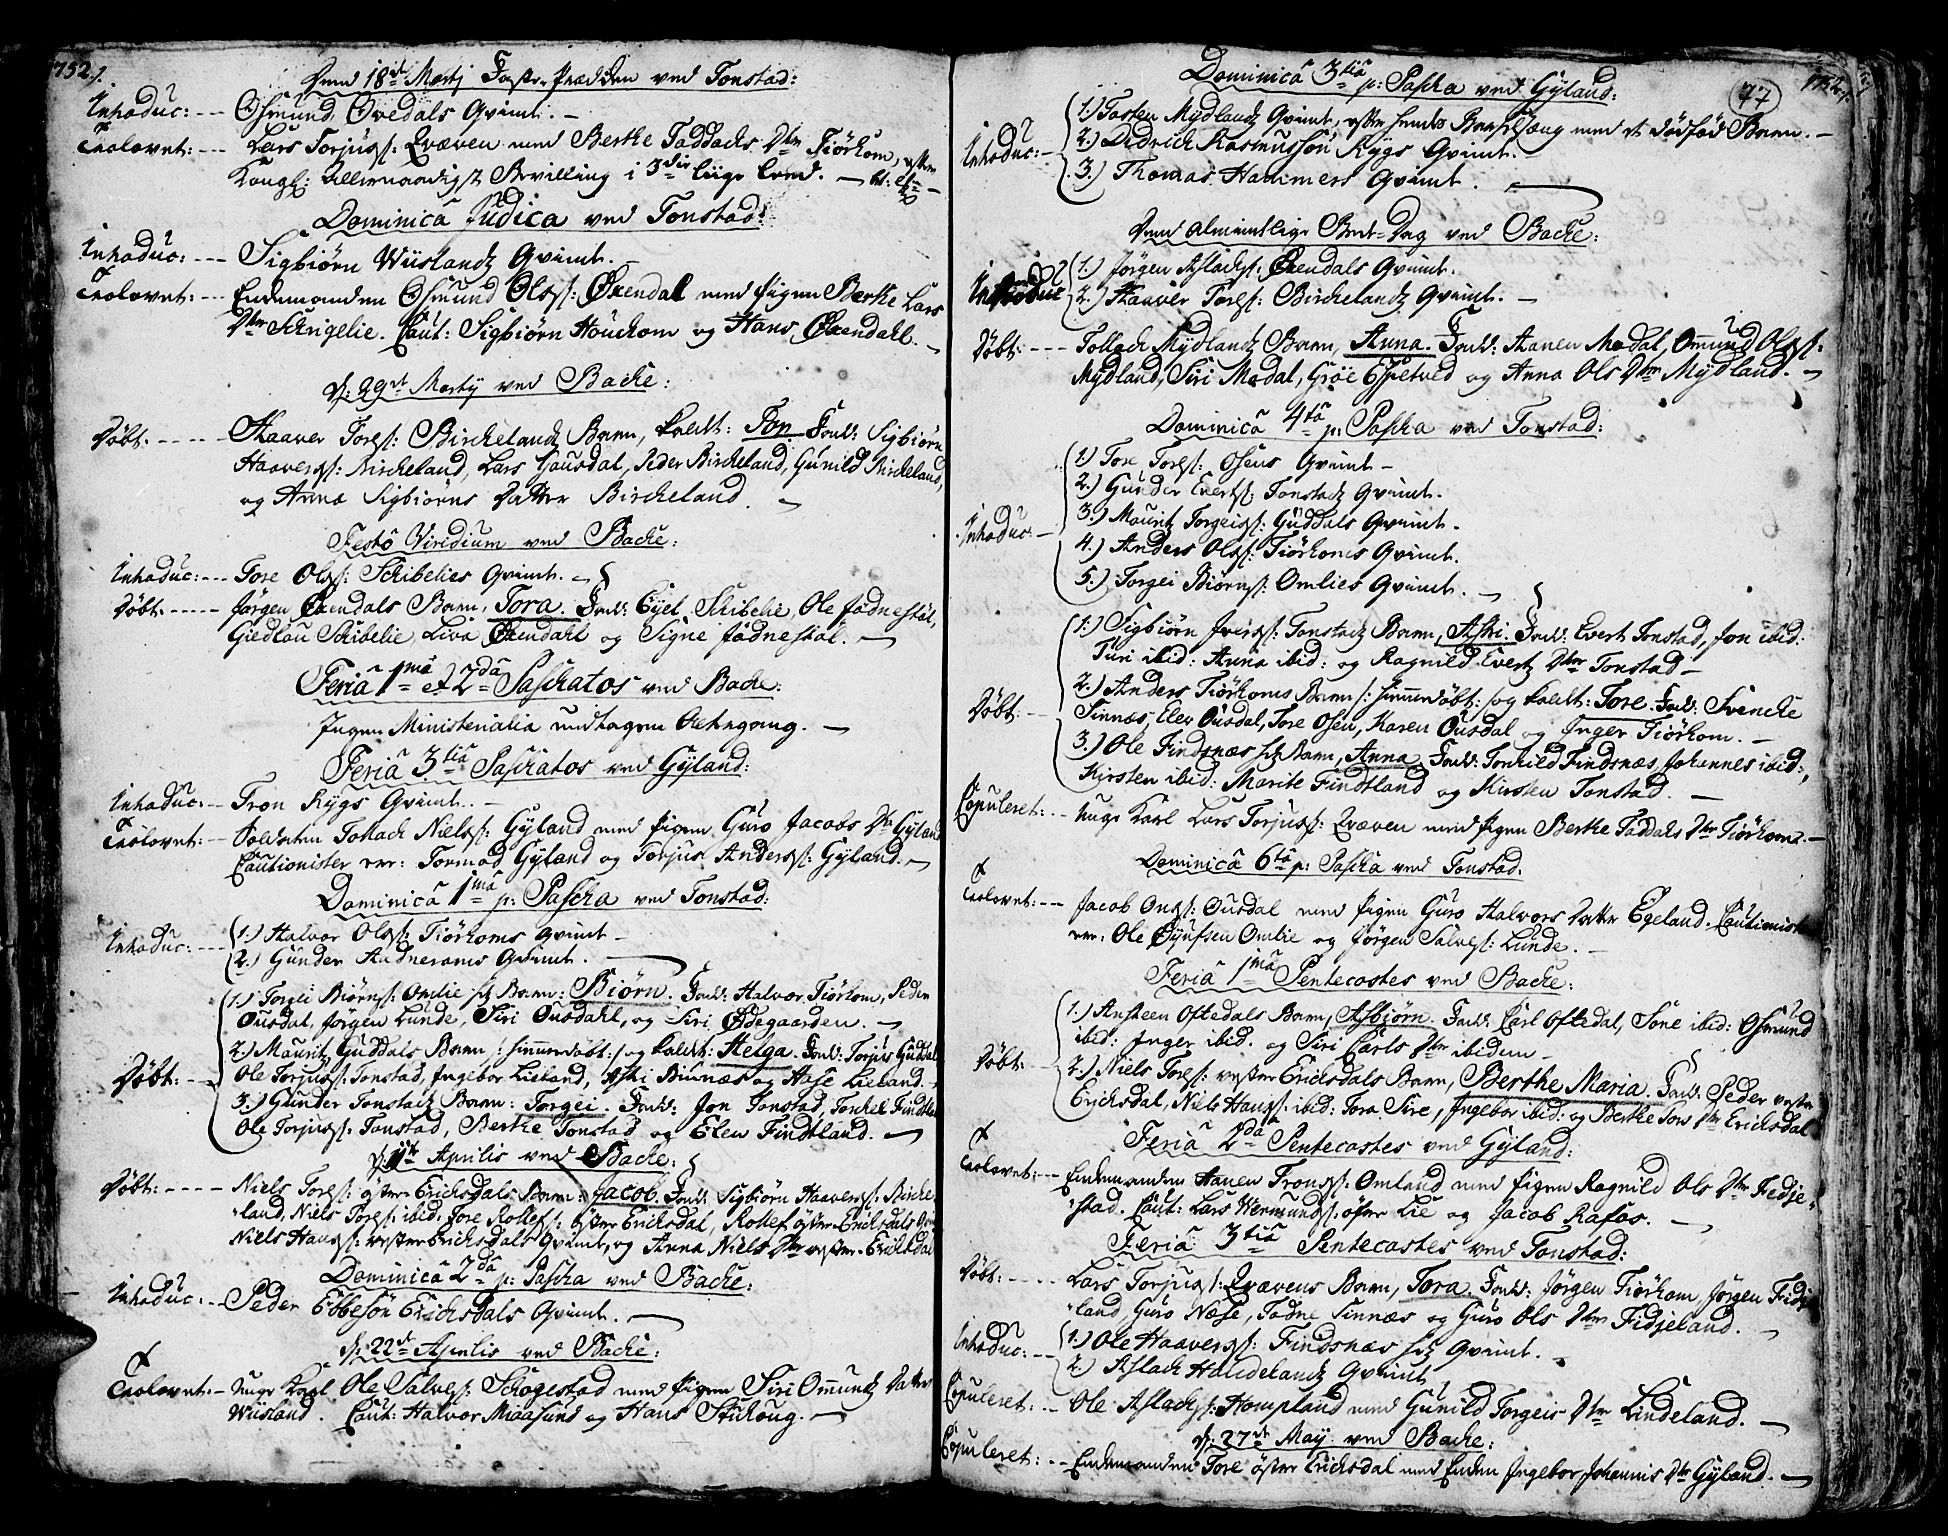 1752.
Dend 18de Martj Faste-Prædiken ved Tonstad:
Introduc: --- Osmund Ovedals Qvinde. -
Trolovet: --- Lars Torjuss: Qvæven med Berthe Taddachs Dtr Tiørhom, efter
Kongl: allernaadigst Bevilling i 3die liige Leed. -
Dominica Judica ved Tonstad:
Introduc: --- Sigbiørn Wiislands Qvinde. -
Trolovet: --- Enkemanden Osmund Olss: Øxendal med Pigen Berthe Lars
Dtr Schrigelie. Caut: Sigbiørn Houchom og Hans Øxendahl. -
d: 29de Martij ved Backe:
Døbt: ----- Haaver Tores: Birchelands Barn, kaldt: Jon. Fadd: Sigbiørn
Haavers: Bircheland, Lars Gausdal, Peder Bircheland, Gunild Bircheland,
og Anna Sigbiørns Datter Bircheland. -
Festo Viridium ved Backe:
Introduc: --- Tore Olss: Schibelies Qvinde. -
Døbt: ----- Jørgen Øxendals Barn, Tora. Fadd: Eijel Schibelie, Ole Jødnestøl,
Giedlou Schibelie, Liva Øxendahl og Signe Jødnestøl. -
Feria 1ma et 2da Paschatos ved Backe:
Ingen Ministerialia undtagen Altergang. -
Feria 3tia Paschatos ved Gyland:
Introduc: -- Tron Rygs Qvinde. -
Trolovet: -- Soldaten Tollach Nielss: Gyland med Pigen Guro Jacobs Dtr Gyland
Cautionister ere: Tormod Gyland og Torjus Anderss: Gyland. -
Dominica 1ma p: Pascha ved Tonstad:
Introduc: --- 1.) Halvor Olss: Tiørhoms Qvinde -
2.) Gunder Audnerams Qvinde. -
1.) Torgei Biørns: Omlie Barn: Biørn. Fadd: Halvor Tiørhom, Peder
Ousdal, Jørgen Lunde, Siri Ousdahl, og Siri Ødegaarden. -
Døbt: -- 2.) Mauritz Guddals Barn /: hiemmedøbt :/ og kaldt: Helga. Fadd: Torjus Guddal
Ole Torjuss: Tonstad, Ingebor Lieland, Astri Binnæs og Aase Lieland. -
3.) Gunder Tonstads Barn: Torgei. Fadd: Jon Tonstad, Tonkel Findtland
Ole Torjuss: Tonstad, Berthe Tonstad og Elen Findtland. -
d: Aprilis ved Backe:
Døbt: ---- Niels Tores: øster Ericksdals Barn: Jacob. Fadd: Sigbiørn Haavers: Birche-
land, Niels Tores: ibid: Tore Rollefs: øster Ericksdal, Rollef øster Ericksdals Qvinde
Niels Hanss: vester Ericksdals Qvinde, og Anna Niels Dtr vester Ericksdal
Dominica 2da p: Pascha ved Backe:
Introduc: -- Peder Ebbesøn Ericksdals Qvinde. -
d: 22de Aprilis ved Backe:
Trolovet: - Unge Karl Ole Salves: Schogestad med Pigen Siri Omunds Datter
Wiisland. Caut: Halvor Miaasund og Hans Stuhoug. -
77
1752.
Dominica 3tia p: Pascha ved Gyland:
1.) Tosten Mydlands Qvinde, efter hendes Barselseng med et dødfød Barn. -
Introduc: - 2.) Didrich Rasmussøn Rygs Qvinde. -
3.) Thomas Hammers Qvinde. -
Dend Almindelige Bede-Dag ved Backe:
Introduc 1.) Jørgen Aslachs: Øxendals Qvinde.
2.) Haaver Tores: Birchelands Qvinde. -
Døbt: --- Tollach Mydlands Barn, Anna. Fadd: Aanen Modal, Omund Olss:
Mydland, Siri Modal, Grøe Espetved og Anna Ols Dtr Mydland. -
Dominica 4ta p: Pascha ved Tonstad:
1.) Tore Tores: Osens Qvinde -
2.) Gunder Everts: Tonstads Qvinde.
Introduc: - 3.) Mauritz Torgeiss: Guddals Qvinde -
4.) Anders Olss: Tiørhoms Qvinde.
5.) Torgei Biørns: Omlies Qvinde. -
1.) Sigbiørn Iverss: Tonstads Barn, Astri. Fadd: Evert Tonstad, Jon ibid:
Turi ibid: Anna ibid: og Ragnild Everts Dtr Tonstad -
2.) Anders Tiørhoms Barn /: hiemmedøbt :/ og kaldt: Tore. Fadd: Svencke
Døbt: -- Sinnæs, Elev Ousdal, Tore Osen, Karen Ousdal og Inger Tiørhom. -
3.) Ole Findsnæs Barn, Anna. Fadd: Tonkild Findsnæs, Johannes ibid:,
Kirsten ibid: Marite Findtland og Kirsten Tonstad. -
Copuleret: -- Unge Karl Lars Torjuss: Qvæven med Pigen Berthe Taddachs Dtr Tiørhom. -
Dominica 6ta p: Pascha ved Tonstad.
Trolovet: -- Jacob Ons: Ousdal med Pigen Guro Halvors Datter Egeland. Cautionister
ere: Ole Omlie og Jørgen Salves: Lunde. -
Feria 1ma Pentecostes ved Backe:
1.) Ansteen Oftedals Barn, Asbjørn. Fadd: Carl Oftedal, Tone ibid: Osmund
ibid: Inger ibid. og Siri Carls Dtr ibidem -
Døbt: - 2.) Niels Tores: vester Ericksdals Barn, Berthe Maria. Fadd: Peder vester
Ericksdal, Niels Hanss: ibid: Tora Sire, Ingebor ibid: og Berthe Tors Dtr Ericksdal
Feria 2da Pentecostes ved Gyland:
Trolovet: -- Enkemanden Aanen Trons: Omland med Pigen Ragnild Ols Dtr Fidje-
stad. Caut: Lars Wermunds: øfre Lie og Jacob Rafos. -
Feria 3tia Pentecostes ved Tonstad:
Døbt: ---- Lars Torjuss: Qvævens Barn, Tora. Fadd: Jørgen Tiørhom, Jørgen Fidje-
land, Guro Næse, Tadne Sinnæs og Guro Ols Dtr Fidjeland. -
Introduc: -- 1.) Ole Haavers: Findsnæs Qvinde. -
2.) Aslach Haudelands Qvinde
Copuleret: -- Ole Aslachs: Hompland med Gunild Torgeis Dtr Lindeland. -
d: 27de Maij ved Backe:
Copuleret: -- Enkemanden Tore øster Ericksdal med Enken Ingebor Johannis Dtr Gyland. -